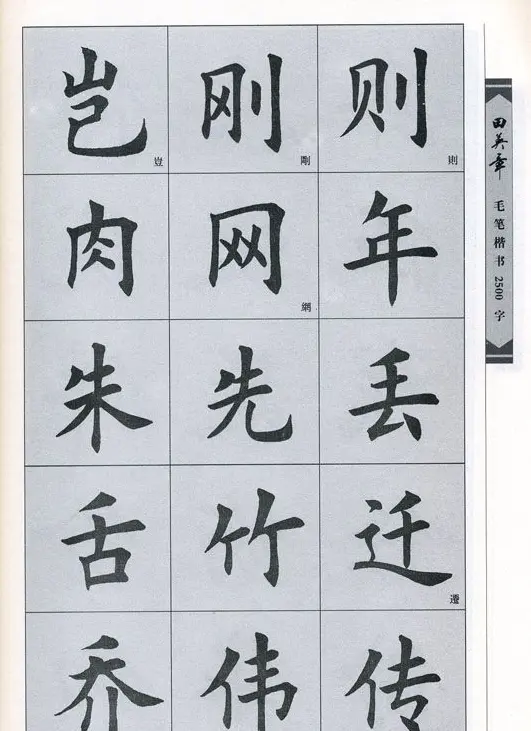 岂 豈 刚 剛 则 則
肉 网 網 年
朱 先 丢
舌 竹 迁 遷
乔 伟 传
田英章
毛笔楷书2500字